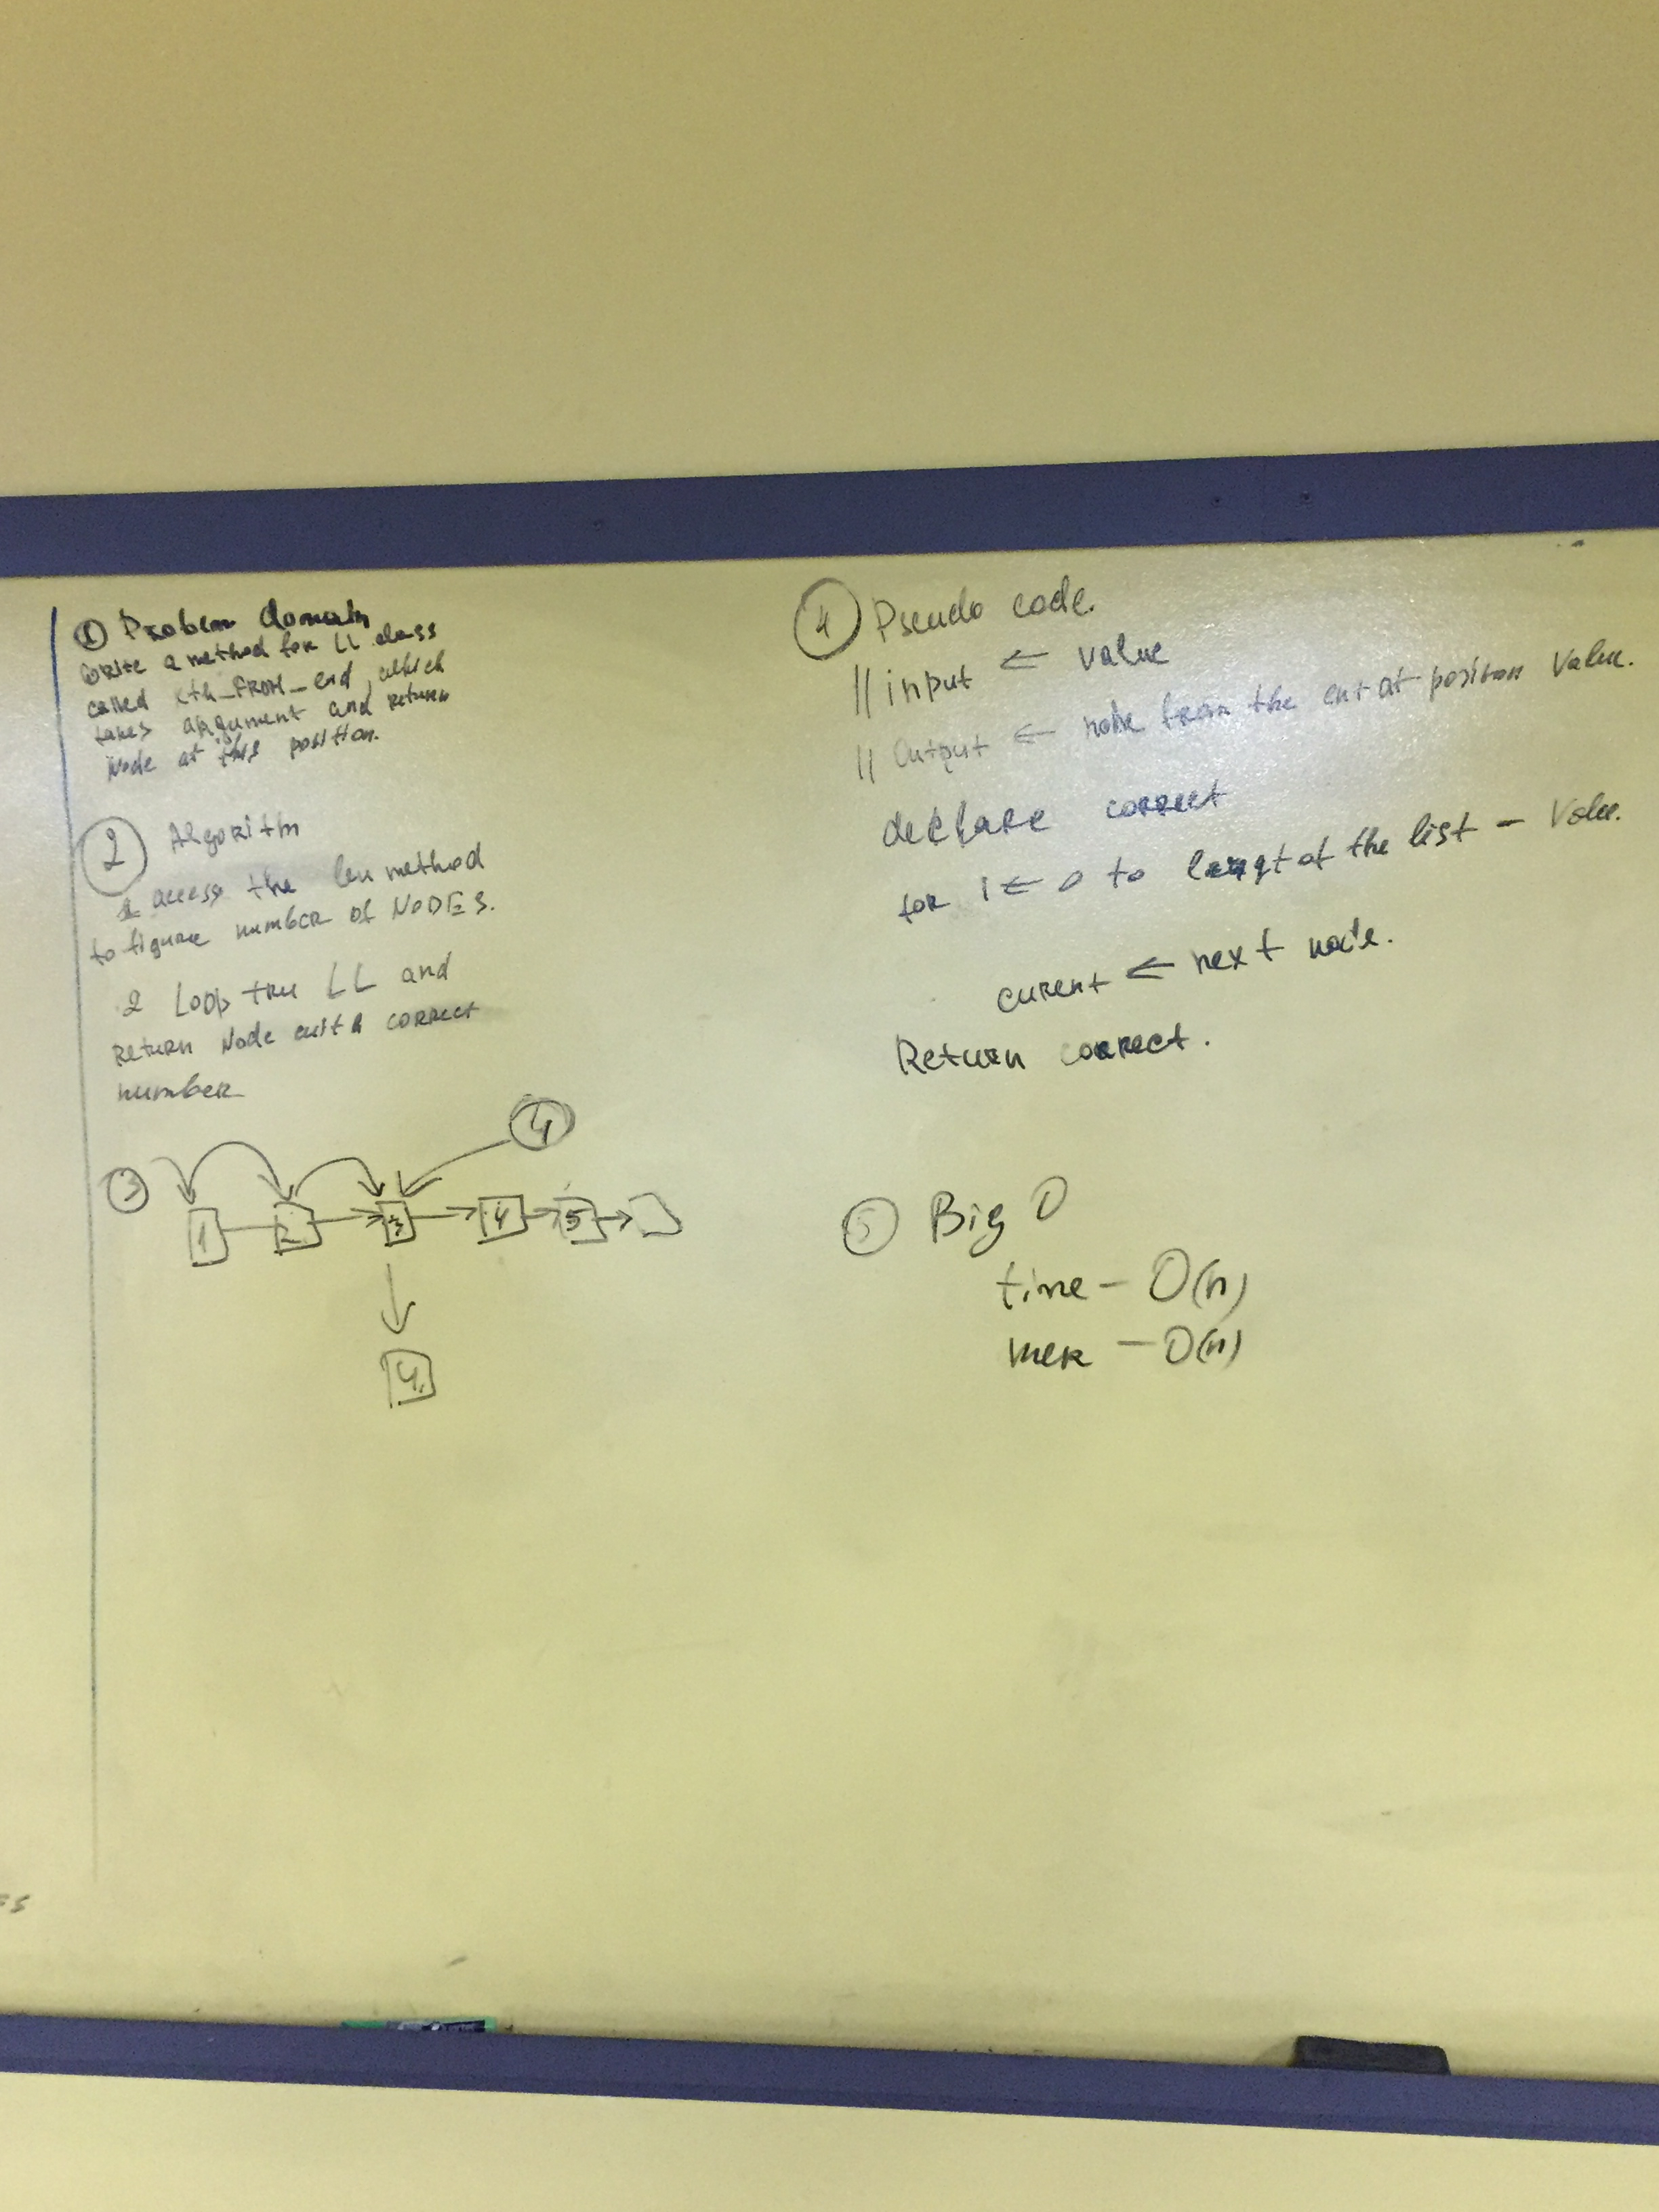 ① Problem domain
Write a method for LL class
called kth_FROM_end, which
takes argument and return
Node at this position.
② Algoritm
1 access the len method
to figure number of NODES.
2 Loop tru LL and
Return Node with correct
number
③
4
1 2 3 4 5
4
④ Pseudo code.
// input ⇐ value
// Output ⇐ node from the ent at position Value.
declare correct
for i ⇐ 0 to lengt of the list - Value.
curent ⇐ next node.
Return correct.
⑤ Big O
time - O(n)
- O(n)
ES